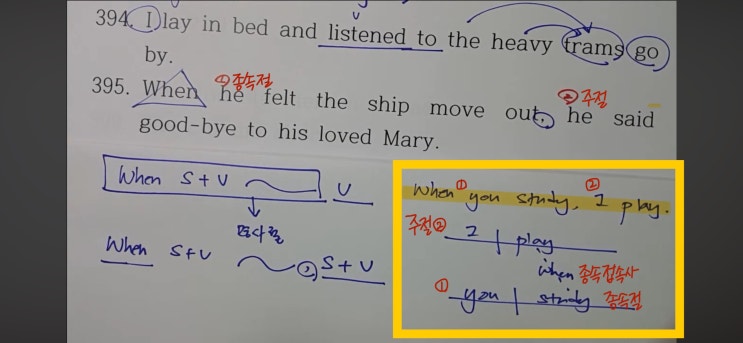 394. I lay in bed and listened to the heavy trams go
by.
395. When he felt the ship move out, he said
① 종속절
② 주절
good-bye to his loved Mary.
When S+V V
명사절
When S+V , S+V
When ① you study, ② I play.
주절② I play
when 종속접속사
① you study 종속절